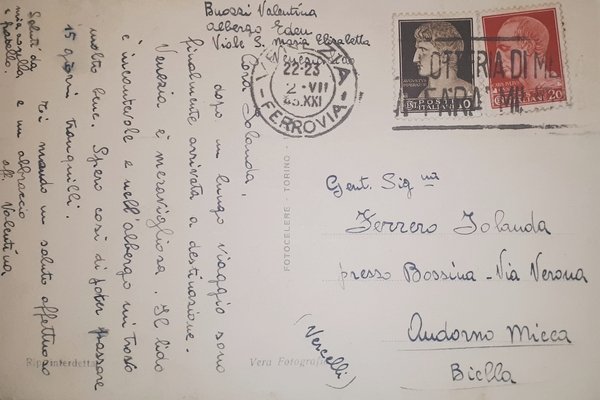 Buossi Valentina
Albergo Eden
Viale S. Maria Elisabetta
Venezia Lido
Cara Jolanda,
dopo un lungo viaggio sono
finalmente arrivata a destinazione.
Venezia è meravigliosa. Il lido
è incantevole e nell'albergo mi trovo
molto bene. Spero così di poter passare
15 giorni tranquilli.
Ti mando un saluto affettuoso
e un abbraccio
aff. Valentina
Saluti da
mia sorella
e fratello.
22-23
2 - VII
43.XXI
FERROVIA
POSTE ITALIANE
10
20
FOTOCELERE - TORINO
Rip. interdetta
Vera Fotografia
Gent. Sig.na
Ferrero Jolanda
presso Bossina - Via Verona
Andorno Micca
Biella
(Vercelli)